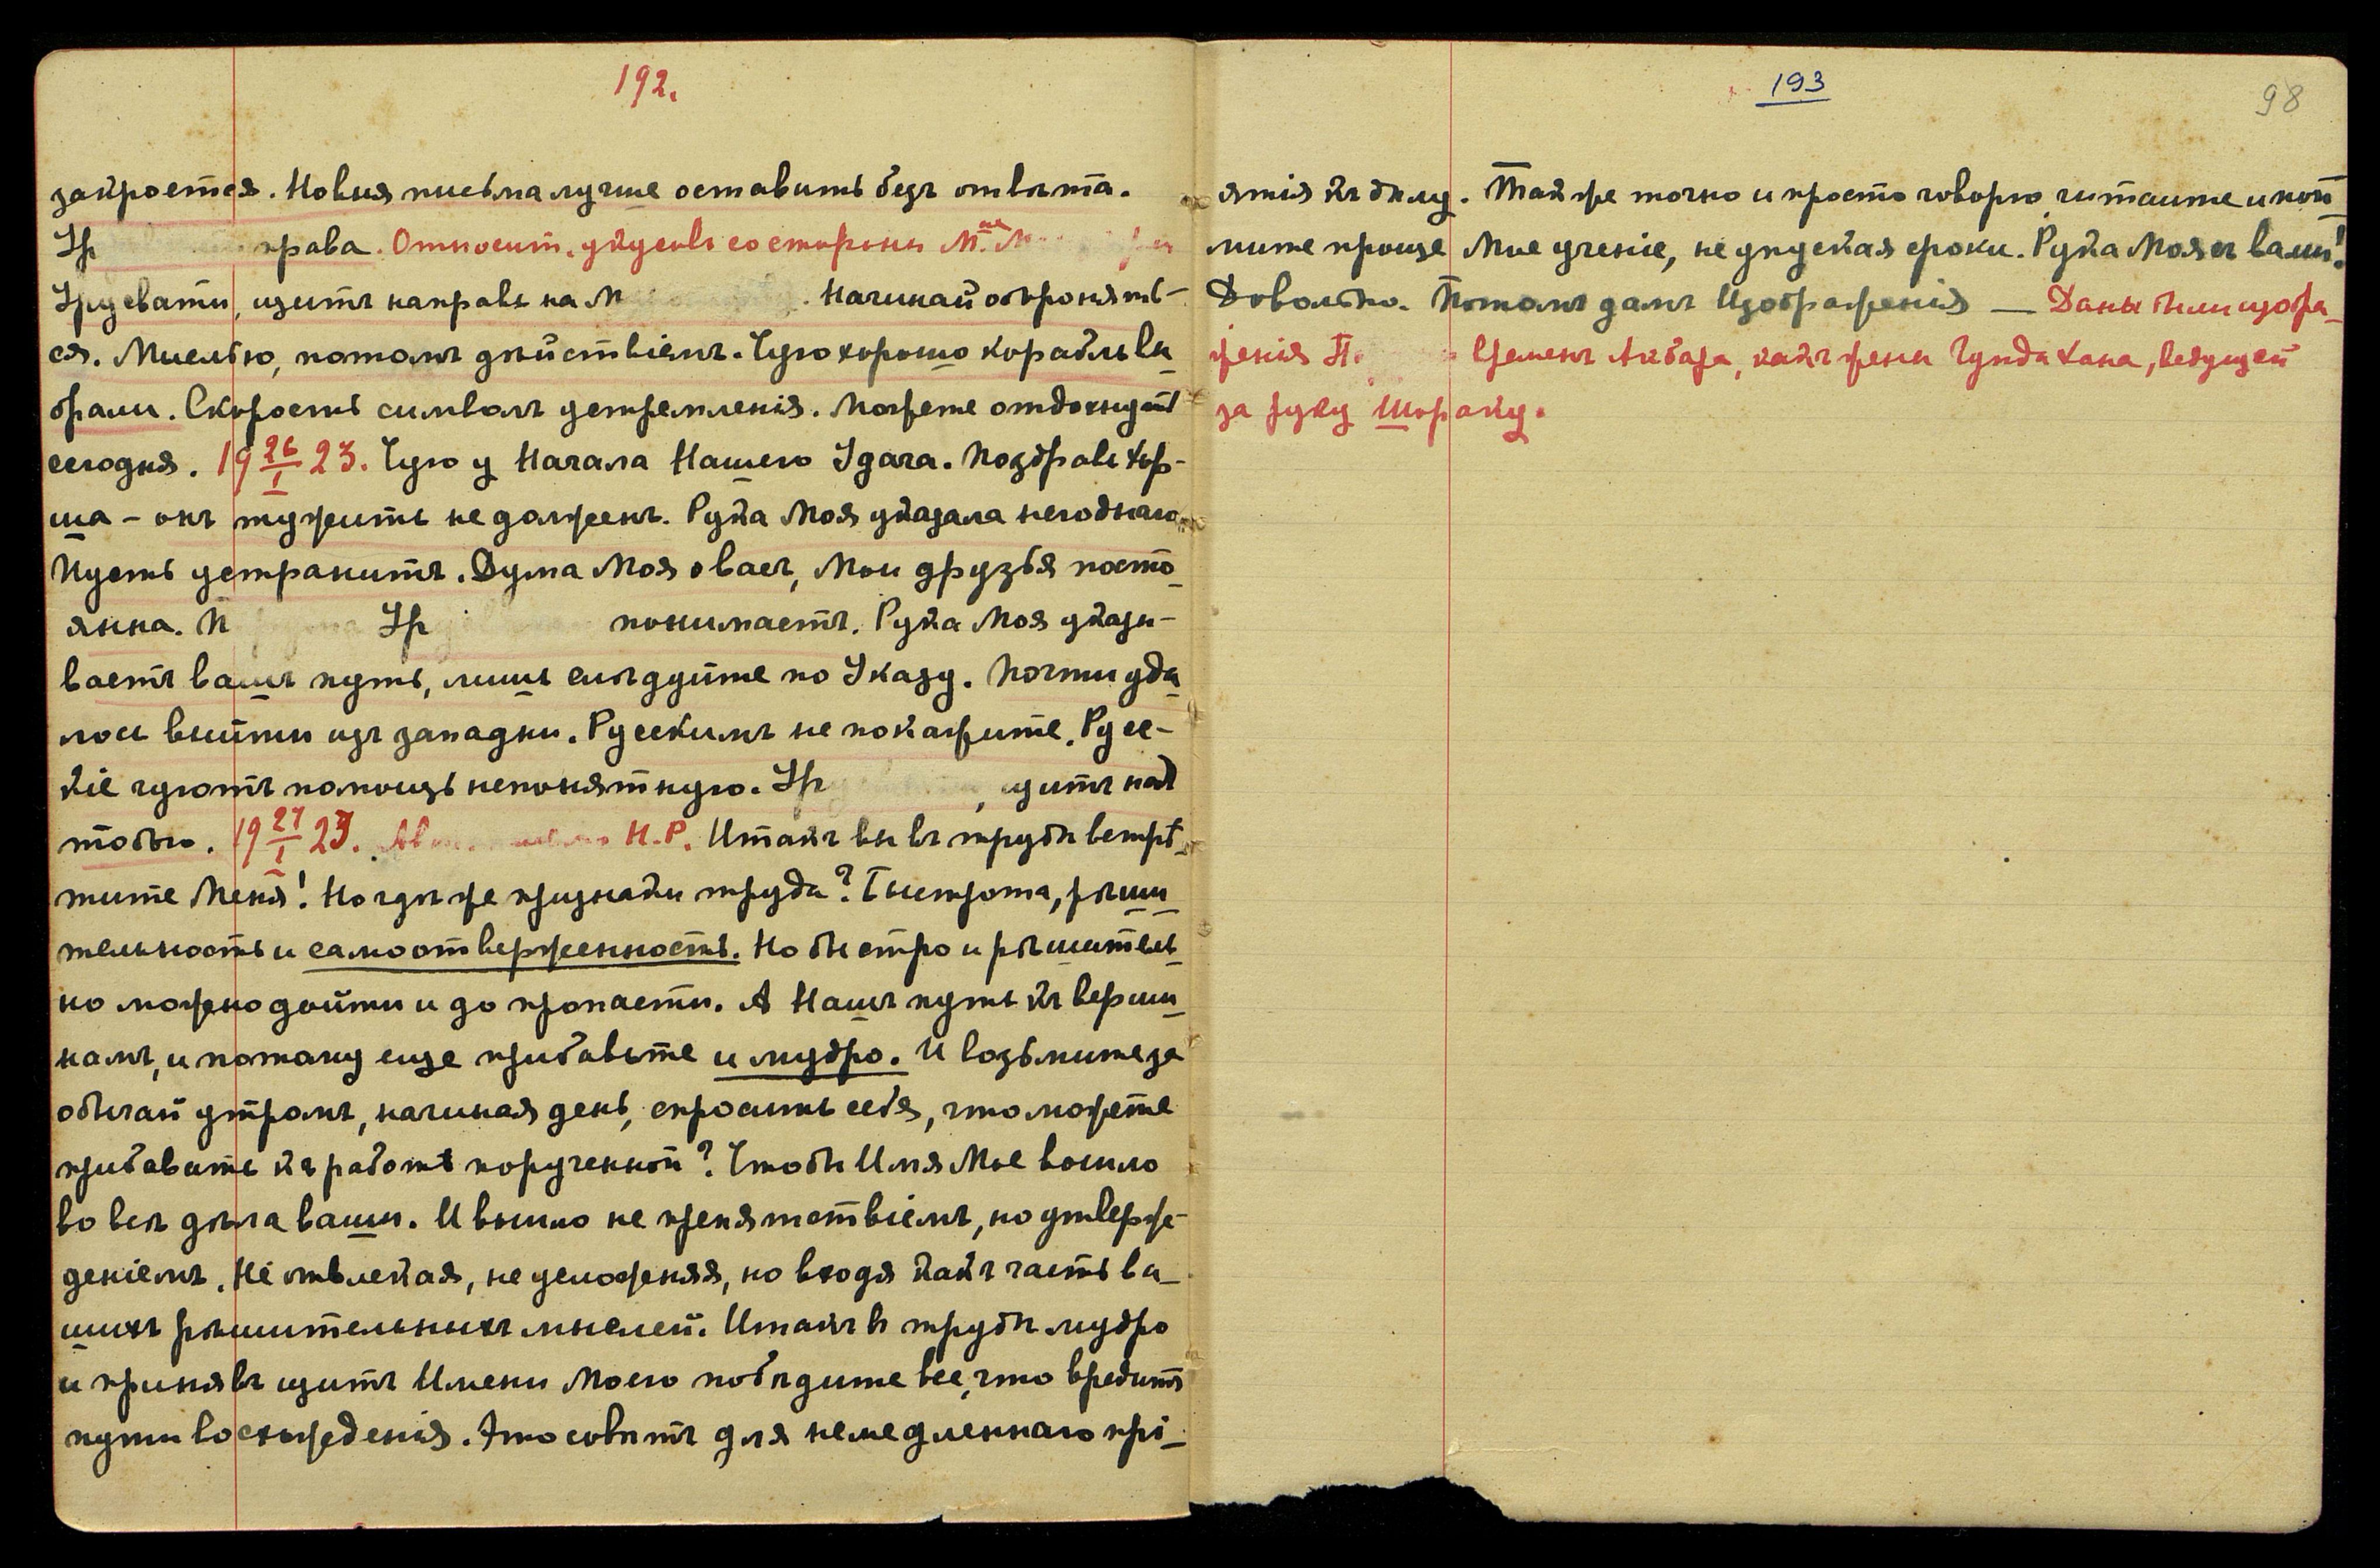 192.
закроется. Новыя письма лучше оставить безъ отвѣта.
Ур права. Относит. укусовъ со стороны М
Урусвати, щитъ направь на М Начинай оборонять-
ся. Мыслью, потомъ дѣйствіемъ. Чую хорошо корабль вы
брали. Скорость символъ устремленія. Можете отдохнуть
сегодня. 19 26/I 23. Чую у Начала Нашего Удача. Поздравь Хор-
ша – онъ тужить не долженъ. Рука Моя указала негоднаго.
Пусть устранитъ. Дума Моя о васъ, Мои друзья посто
янна. П Ур понимаетъ. Рука Моя указы-
ваетъ вашъ путь, лишь слѣдуйте по Указу. Почти уда
лось выйти изъ западни. Русскимъ не покажите. Рус-
кіе чуютъ помощь непонятную. Ур , щитъ над
тобою. 19 27/I 23. Н.Р. Итакъ вы въ трудѣ встрѣ
тите Меня! Но гдѣ же признаки труда? Быстрота, рѣши
тельность и самоотверженность. Но быстро и рѣшитель
но можно дойти и до пропасти. А Нашъ путь къ верши
намъ, и потому еще прибавьте и мудро. И возьмите за
обычай утромъ, начиная день, спросить себя, что можете
прибавить къ работѣ порученной? Чтобы Имя Мое вошло
во всѣ дѣла ваши. И вышло не препятствіемъ, но утверж-
деніемъ. Не отвлекая, не усложняя, но входя какъ часть ва
шихъ рѣшительныхъ мыслей. Итакъ въ трудѣ мудро
и принявъ щитъ Имени Моего побѣдите все, что вредитъ
пути восхожденія. Это совѣтъ для немедленнаго прі
193
98
ятія къ дѣлу. Также точно и просто говорю читайте и пой
мите проще Мое ученіе, не упуская сроки. Рука Моя съ вами!
Довольно. Потомъ дамъ Изображенія — Даны были изобра
женія П временъ Акбара, какъ жены Гунда Хана, ведущей
за руку Шораку.